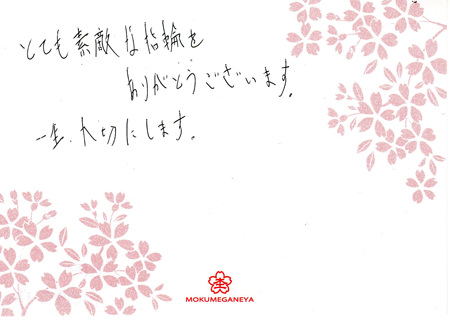 とても素敵な指輪を
ありがとうございます。
一生、大切にします。
杢
MOKUMEGANEYA